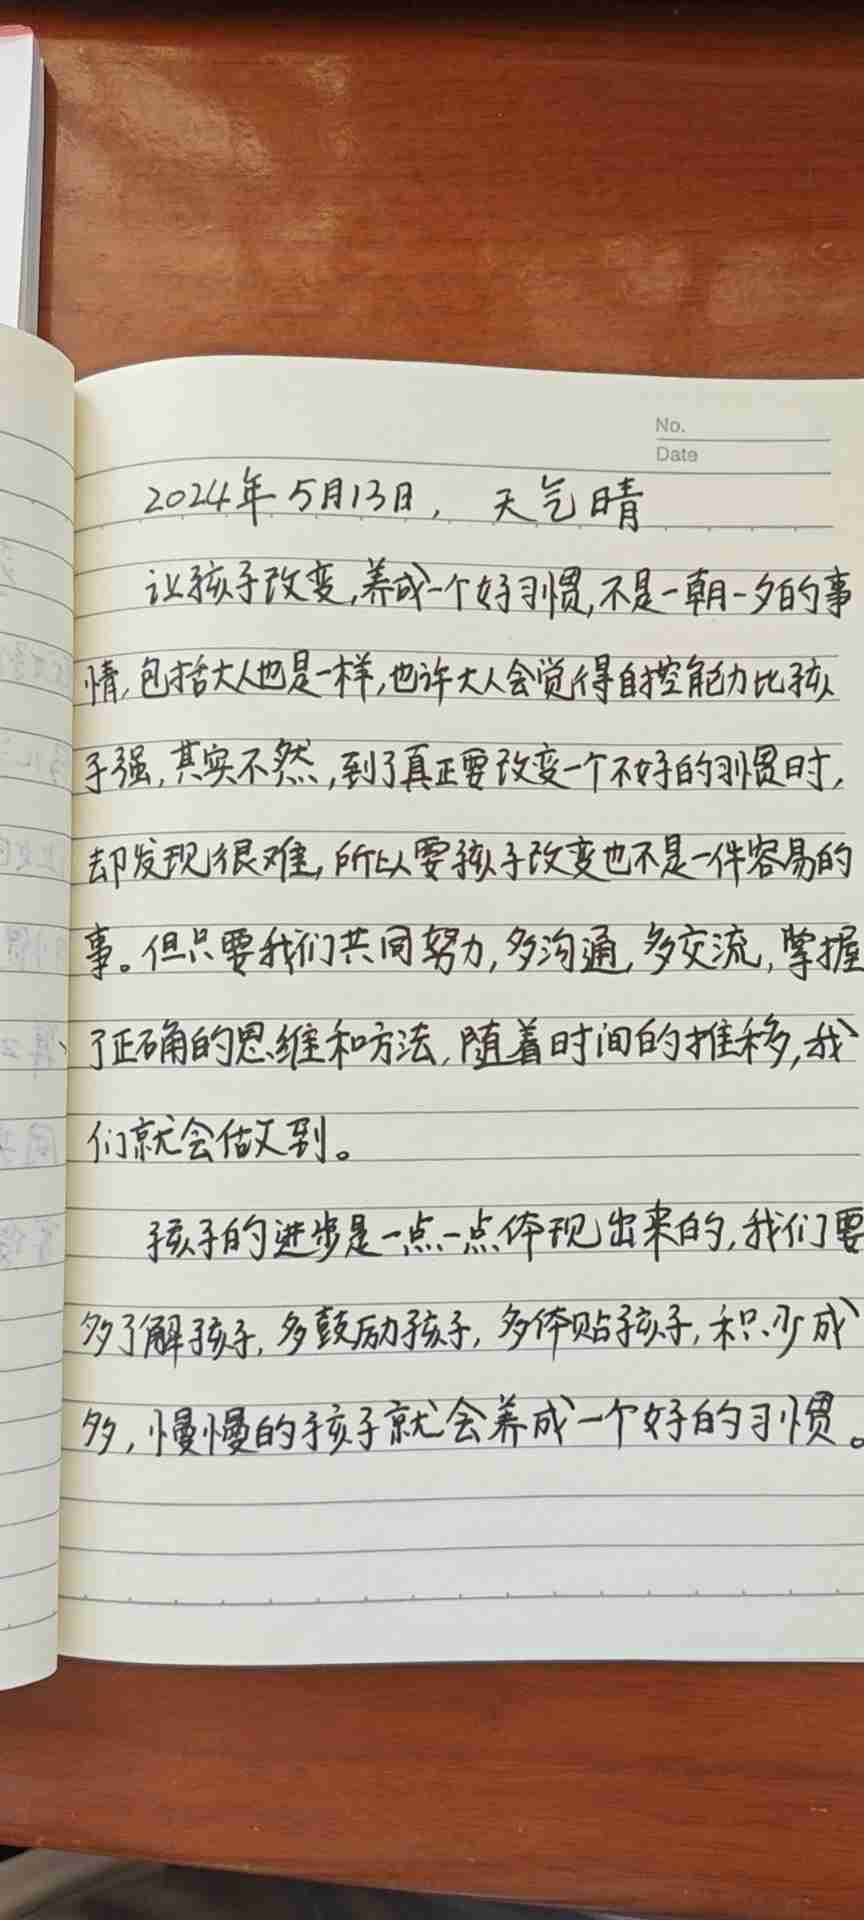 No.
Date
2024年5月13日，天气晴
让孩子改变，养成一个好习惯，不是一朝一夕的事
情，包括大人也是一样，也许大人会觉得自控能力比孩
子强，其实不然，到了真正要改变一个不好的习惯时，
却发现很难，所以要孩子改变也不是一件容易的
事。但只要我们共同努力，多沟通，多交流，掌握
了正确的思维和方法，随着时间的推移，我
们就会做到。
孩子的进步是一点一点体现出来的，我们要
多了解孩子，多鼓励孩子，多体贴孩子，积少成
多，慢慢的孩子就会养成一个好的习惯。